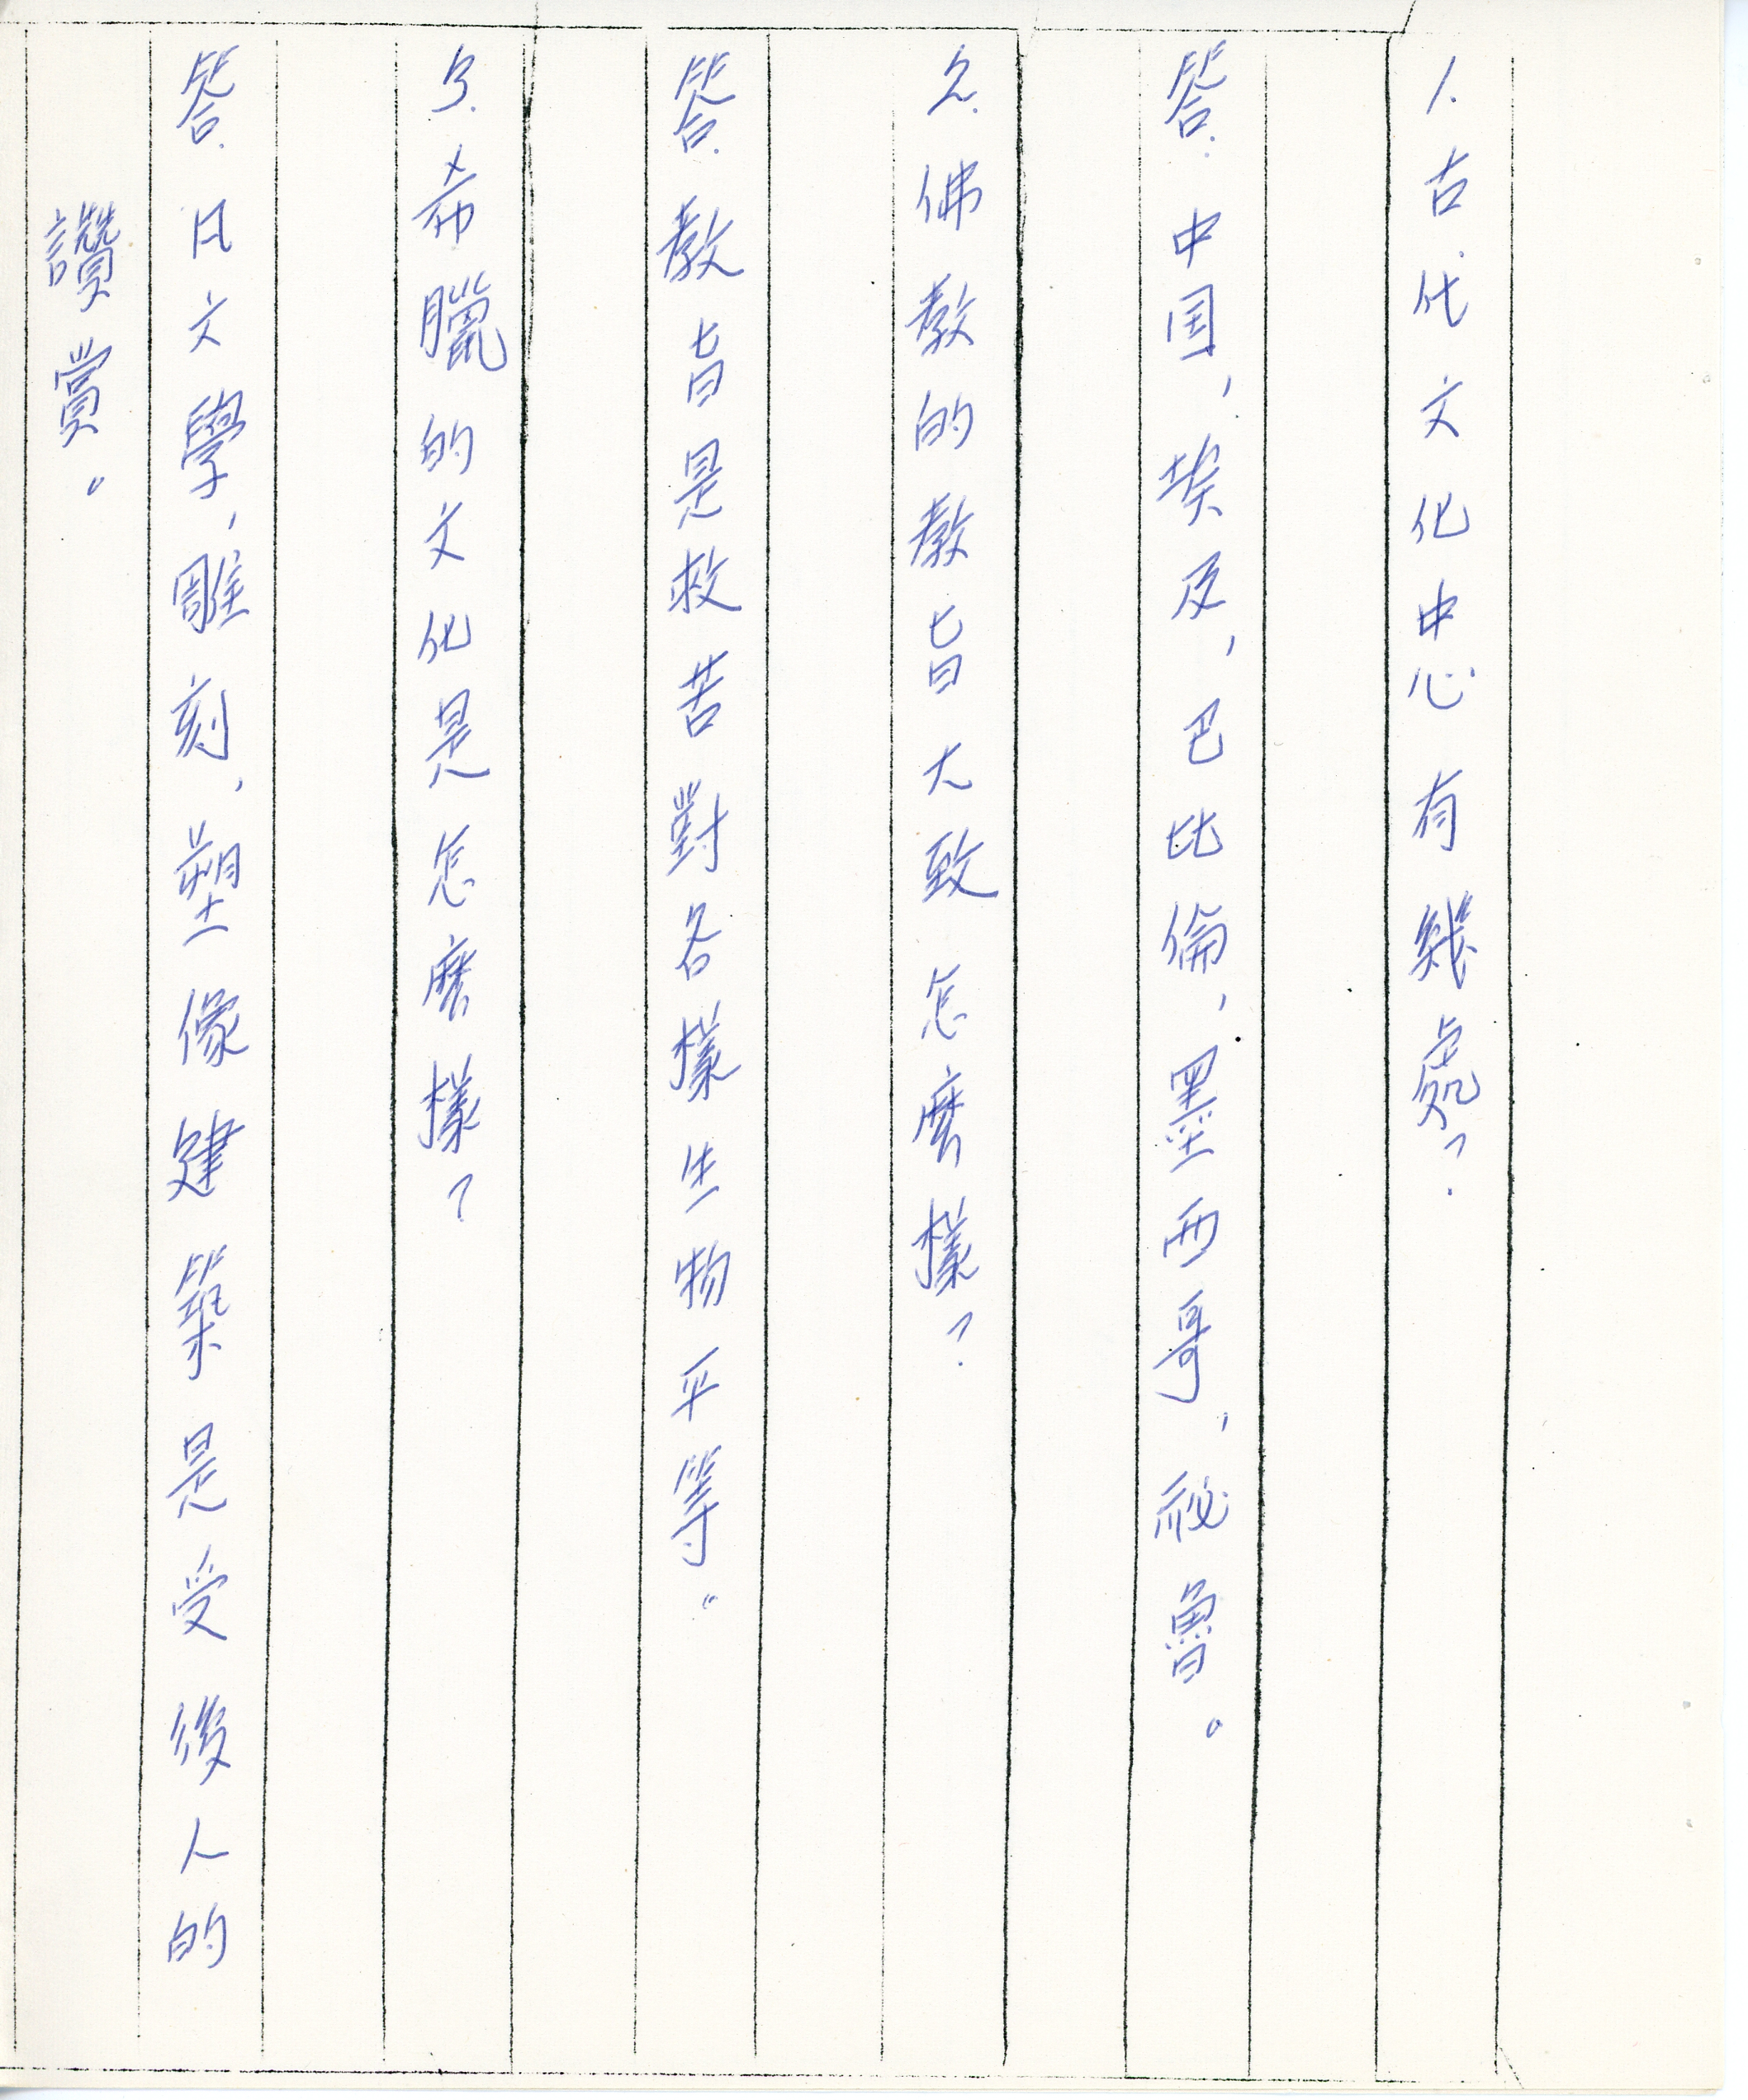 1. 古代文化中心有幾處?
答. 中国、埃及、巴比倫、墨西哥、祕魯。
2. 佛教的教旨大致怎麽樣?
答. 教旨是救苦對各樣生物平等。
3. 希臘的文化是怎麽樣?
答. 日文學、雕刻、塑像建築是受後人的
讚賞。